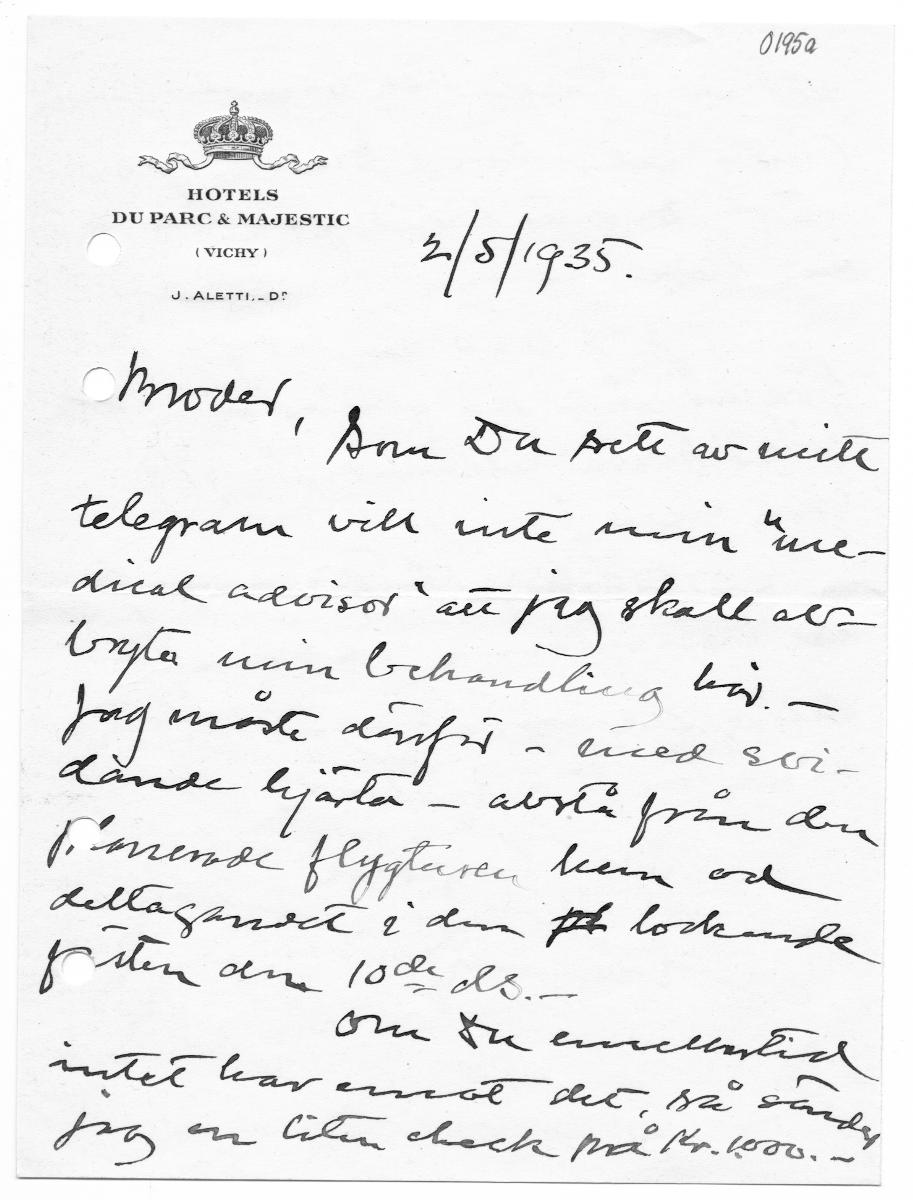 0195a
HOTELS
DU PARC & MAJESTIC
(VICHY)
J. ALETTI, _ Dr
2/5/1935.
Broder,
Som Du sett av mitt
telegram vill inte min "me-
dical advisor" att jag skall av-
bryta min behandling här. –
Jag måste därför – med svi-
dande hjärta – avstå från den
planerade flygturen hem och
deltagandet i den lockande
festen den 10de ds. –
Om Du emellertid
intet har emot det, så sänder
jag en liten check på Kr. 1.000. –